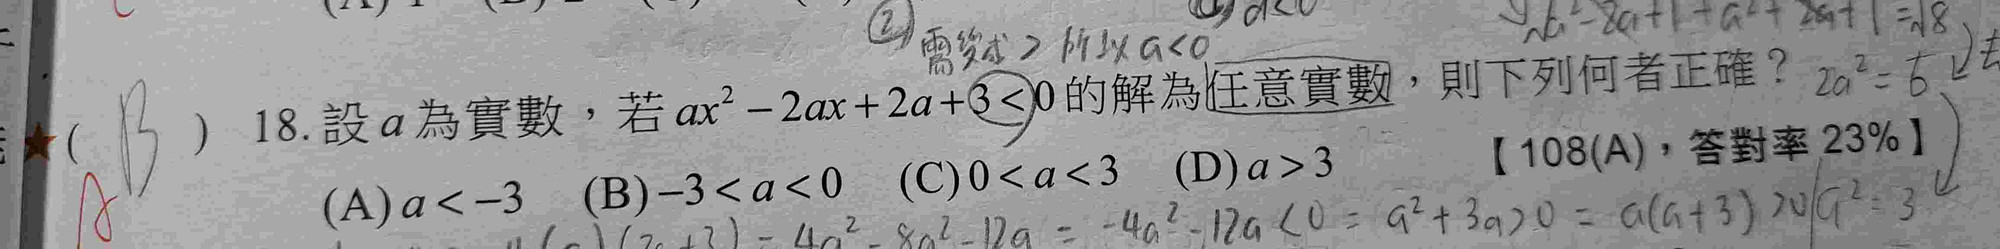 ② a<0
√a²-8a+1+a²+2a+1=√8
需變成>所以a<0
18. 設 a 為實數，若 ax² − 2ax + 2a + 3 < 0 的解為任意實數，則下列何者正確？ 2a²=6
★( B ) A
【108(A)，答對率 23%】
(A) a < −3 (B) −3 < a < 0 (C) 0 < a < 3 (D) a > 3
= 4a²-8a²-12a = -4a²-12a<0 = a²+3a>0 = a(a+3)>0 a²=3